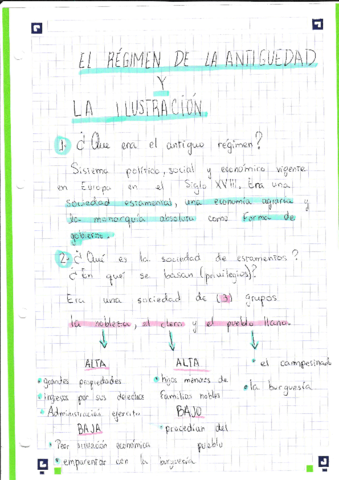 EL RÉGIMEN DE LA ANTIGUEDAD
Y
LA ILUSTRACIÓN
1. ¿Que era el antiguo régimen?
Sistema político, social y económico vigente
en Europa en el Siglo XVIII. Era una
sociedad estamental, una economía agraria y
la monarquía absoluta como forma de
gobierno.
2. ¿Qué es la sociedad de estamentos?
¿En qué se basan (privilegios)?
Era una sociedad de (3) grupos
la nobleza, el clero y el pueblo llano.
ALTA ALTA • el campesinado
• grandes propiedades • hijos menores de • la burguesía
• ingresos por sus derechos familias nobles
• Administración ejercito BAJO
BAJA • procedían del
• Peor situación económica pueblo
• emparentar con la burguesía